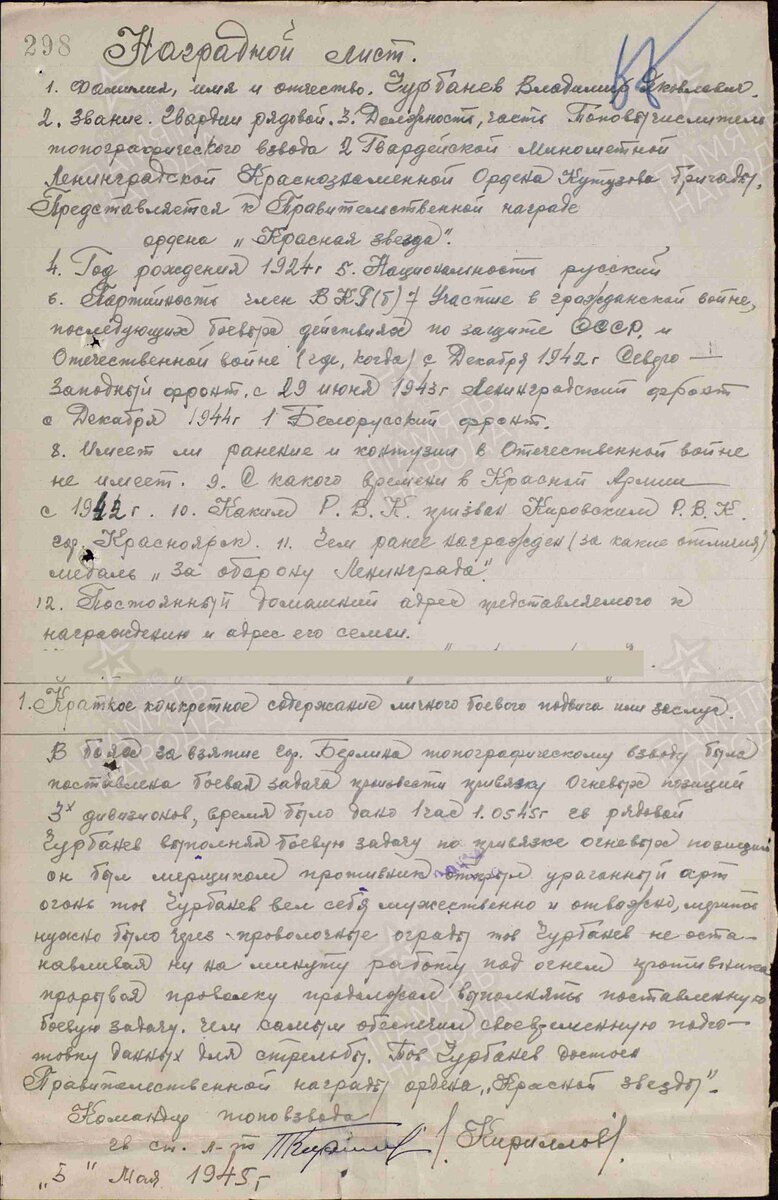 298
Наградной лист.
1. Фамилия, имя и отчество. Чурбанев Владимир Яковлевич.
2. Звание. Гвардии рядовой. 3. Должность, часть Топовычислитель
топографического взвода 2 Гвардейской Минометной
Ленинградской Краснознаменной Ордена Кутузова бригады.
Представляется к Правительственной награде
ордена „Красная звезда".
4. Год рождения 1924г 5. Национальность русский
6. Партийность член ВКП(б) 7 Участие в гражданской войне,
последующих боевых действиях по защите СССР и
Отечественной войне (где, когда) с Декабря 1942г Северо—
Западный фронт. с 29 июня 1943г Ленинградский фронт
с Декабря 1944г 1 Белорусский фронт.
8. Имеет ли ранение и контузии в Отечественной войне
не имеет. 9. С какого времени в Красной Армии
с 1942г. 10. Каким Р.В.К. призван Кировским Р.В.К.
гор. Красноярск. 11. Чем ранее награжден (за какие отличия)
медаль „За оборону Ленинграда".
12. Постоянный домашний адрес представляемого к
награждению и адрес его семьи.
1. Краткое конкретное содержание личного боевого подвига или заслуг.
В боях за взятие гор. Берлина топографическому взводу была
поставлена боевая задача произвести привязку огневых позиций
3х дивизионов, время было дано 1 час 1.05.45г гв рядовой
Чурбанев выполняя боевую задачу по привязке огневых позиций
он был мерщиком противник открыл ураганный арт
огонь тов Чурбанев вел себя мужественно и отважно, мерить
нужно было через проволочные ограды тов Чурбанев не оста-
навливая ни на минуту работу под огнем противника
прорывая проволку продолжал выполнять поставленную
боевую задачу. Чем самым обеспечил своевременную подго-
товку данных для стрельбы. Тов Чурбанев достоен
Правительственной награды ордена „Красной звезды".
Командир топовзвода
гв ст. л-т /Кириллов/
„5" Мая 1945г
ПАМЯТЬ НАРОДА